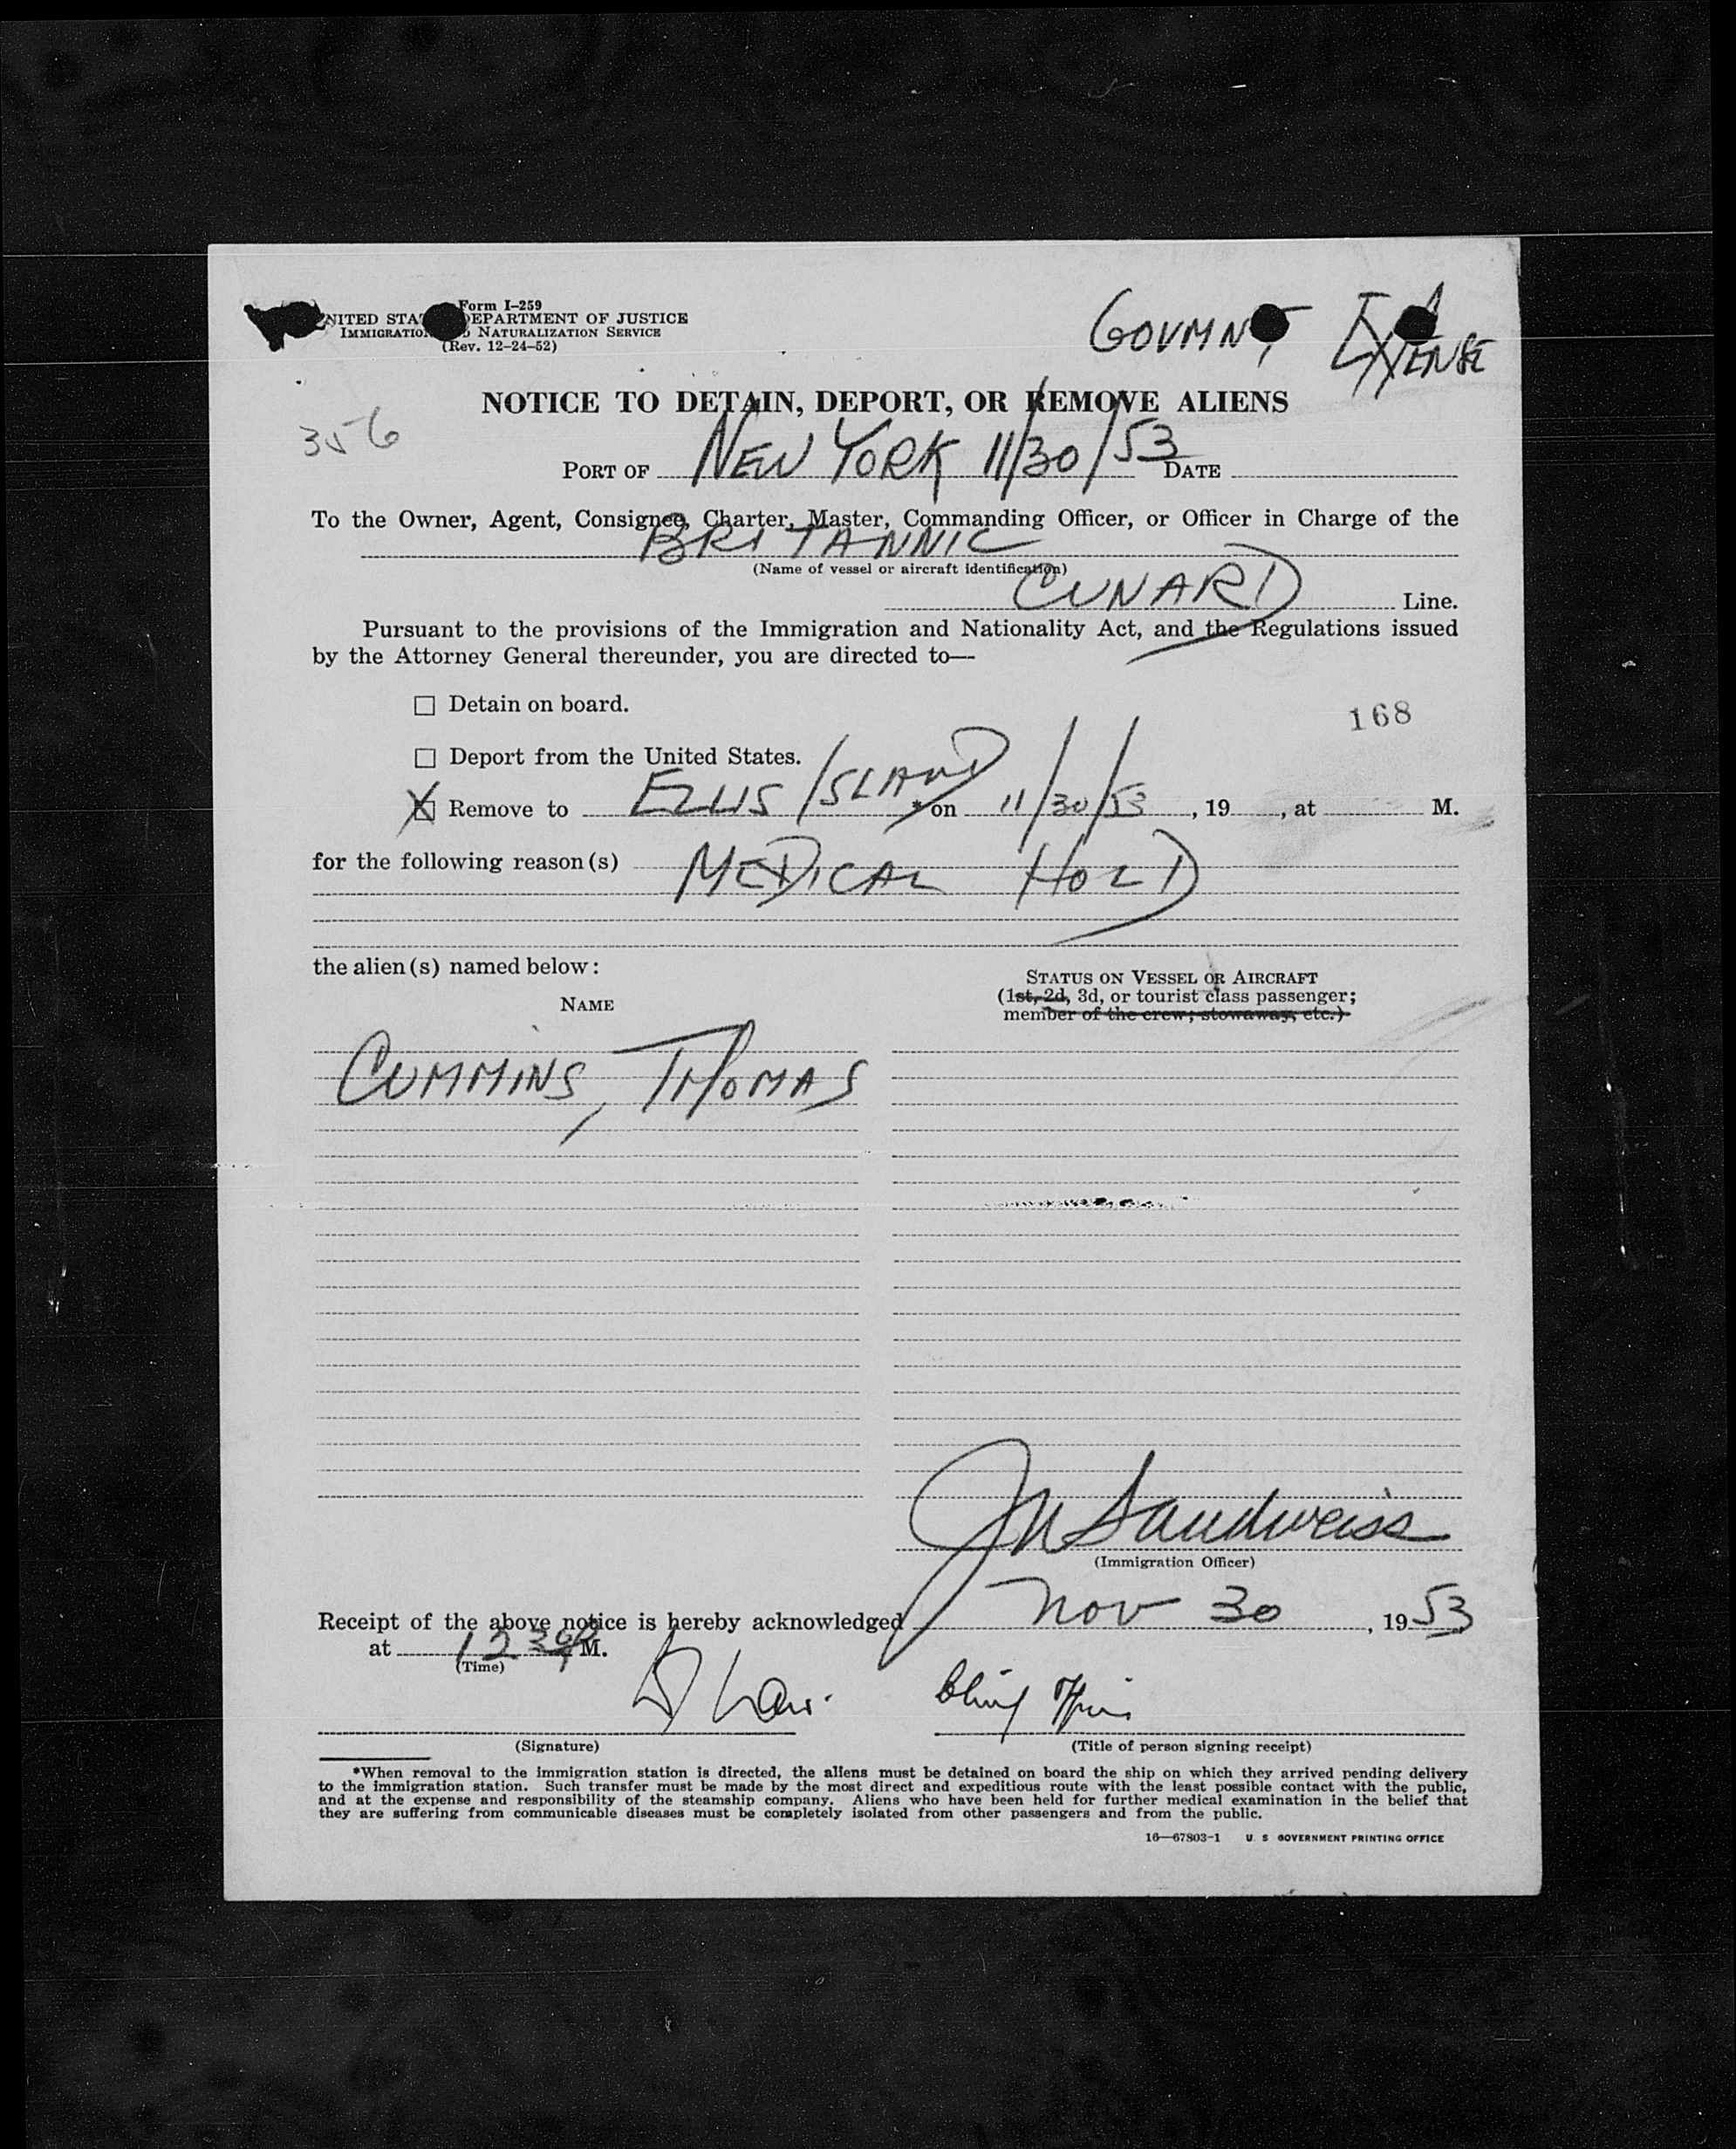 Form I-259
UNITED STATES DEPARTMENT OF JUSTICE
IMMIGRATION AND NATURALIZATION SERVICE
(Rev. 12-24-52)
GOVMNT EXPENSE
NOTICE TO DETAIN, DEPORT, OR REMOVE ALIENS
356
PORT OF NEW YORK 11/30/53 DATE
To the Owner, Agent, Consignee, Charter, Master, Commanding Officer, or Officer in Charge of the
BRITANNIC
(Name of vessel or aircraft identification)
CUNARD Line.
Pursuant to the provisions of the Immigration and Nationality Act, and the Regulations issued
by the Attorney General thereunder, you are directed to—
☐ Detain on board.
168
☐ Deport from the United States.
☒ Remove to ELLIS ISLAND *on 11/30/53, 19, at M.
for the following reason(s) MEDICAL HOLD
the alien(s) named below:
NAME
STATUS ON VESSEL OR AIRCRAFT
(1st, 2d, 3d, or tourist class passenger;
member of the crew; stowaway, etc.)
CUMMINS, THOMAS
JM Sandweiss
(Immigration Officer)
Receipt of the above notice is hereby acknowledged Nov 30, 1953
at 1230P M.
(Time)
(Signature)
(Title of person signing receipt)
*When removal to the immigration station is directed, the aliens must be detained on board the ship on which they arrived pending delivery
to the immigration station. Such transfer must be made by the most direct and expeditious route with the least possible contact with the public,
and at the expense and responsibility of the steamship company. Aliens who have been held for further medical examination in the belief that
they are suffering from communicable diseases must be completely isolated from other passengers and from the public.
16—67803-1 U. S GOVERNMENT PRINTING OFFICE